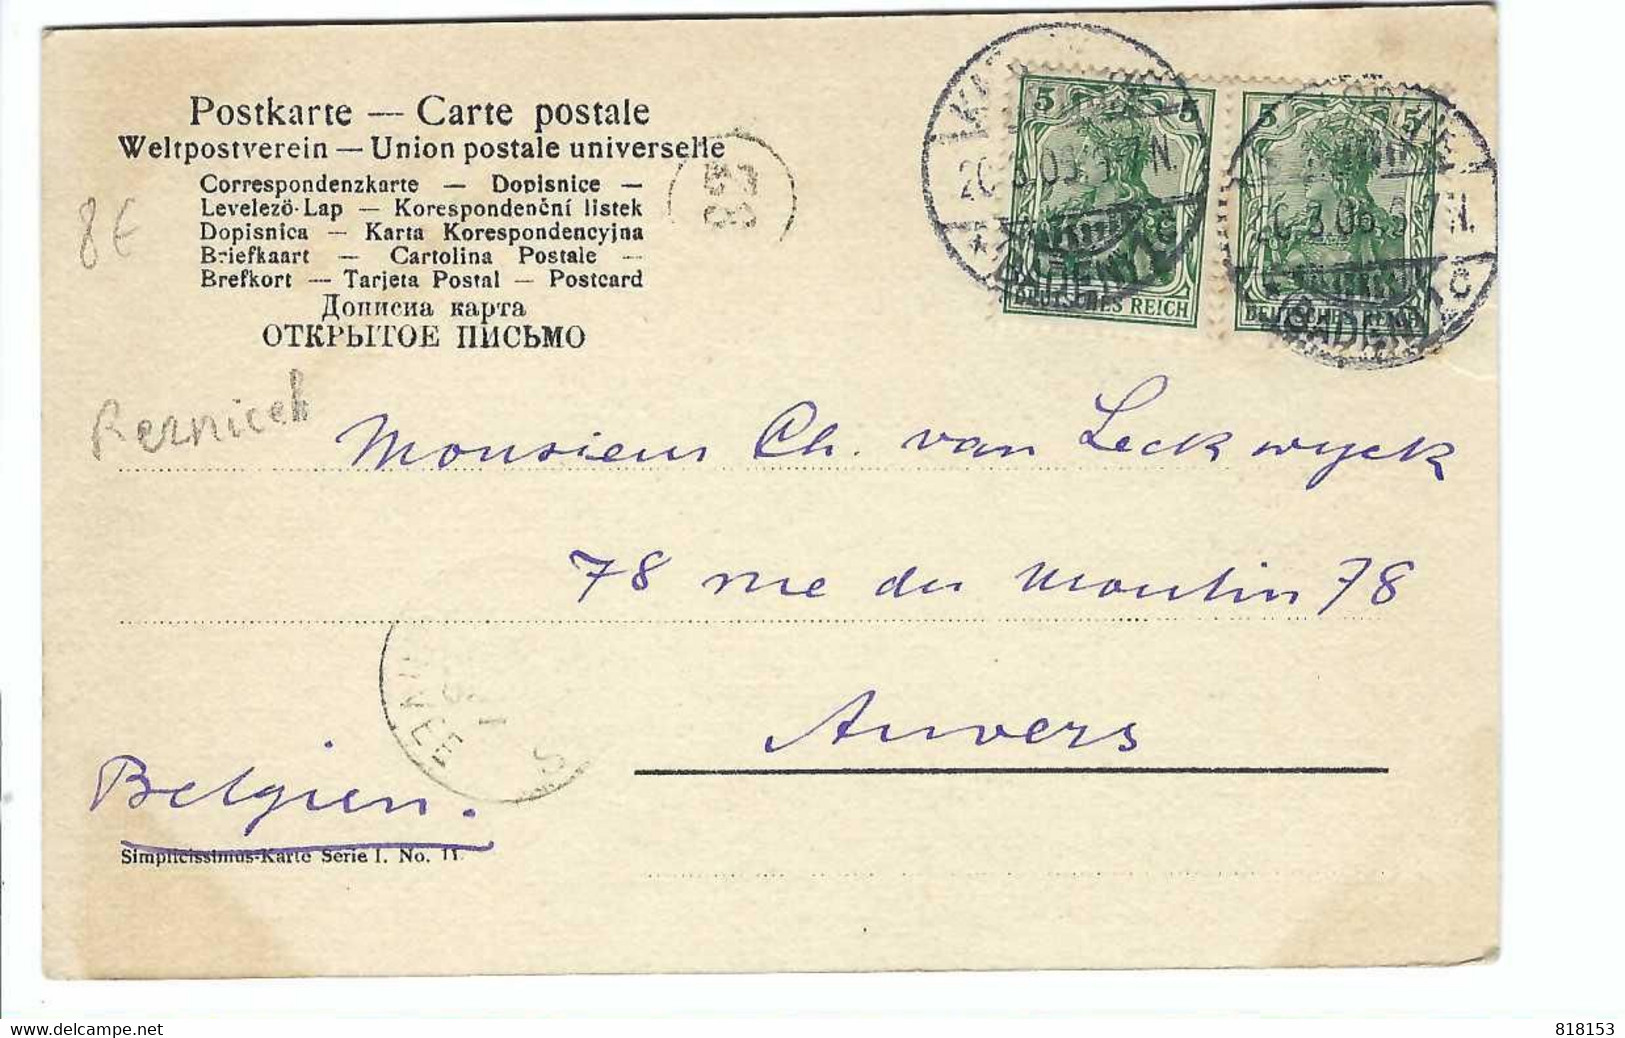 Postkarte — Carte postale
Weltpostverein — Union postale universelle
Correspondenzkarte — Dopisnice —
Levelező-Lap — Korespondenční listek
Dopisnica — Karta Korespondencyjna
Briefkaart — Cartolina Postale —
Brefkort — Tarjeta Postal — Postcard
Дописна карта
ОТКРЫТОЕ ПИСЬМО
8€
Reznicek
5 5
DEUTSCHES REICH
5 5
DEUTSCHES REICH
(BADEN)
(BADEN)
20.3.06. 5-7N.
* c
Monsieur Ch. van Leckwyck
78 rue du Moulin 78
Anvers
Belgien.
Simplicissimus-Karte Serie I. No. 11.
www.delcampe.net
tin tin
818153